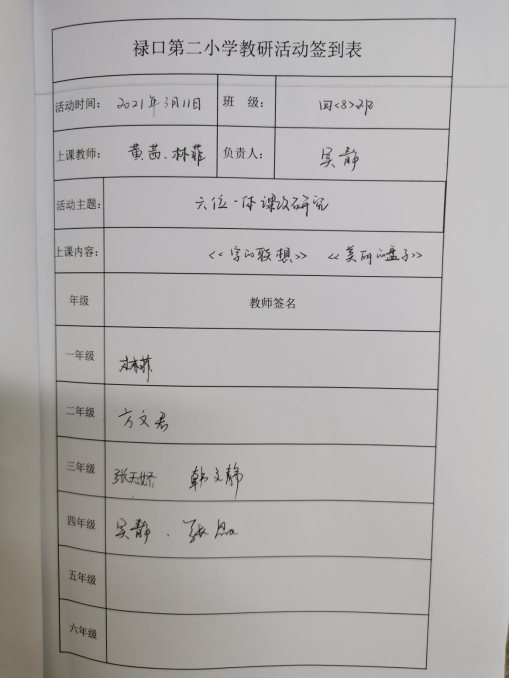 禄口第二小学教研活动签到表
活动时间： 2021年3月11日 班 级： 四<8>班
上课教师： 黄茜、林菲 负责人： 吴静
活动主题： 六位一体课改研究
上课内容： <<字的联想>> <<美丽的盘子>>
年级 教师签名
一年级 林菲
二年级 方文君
三年级 张天娇 韩文静
四年级 吴静、张
五年级
六年级